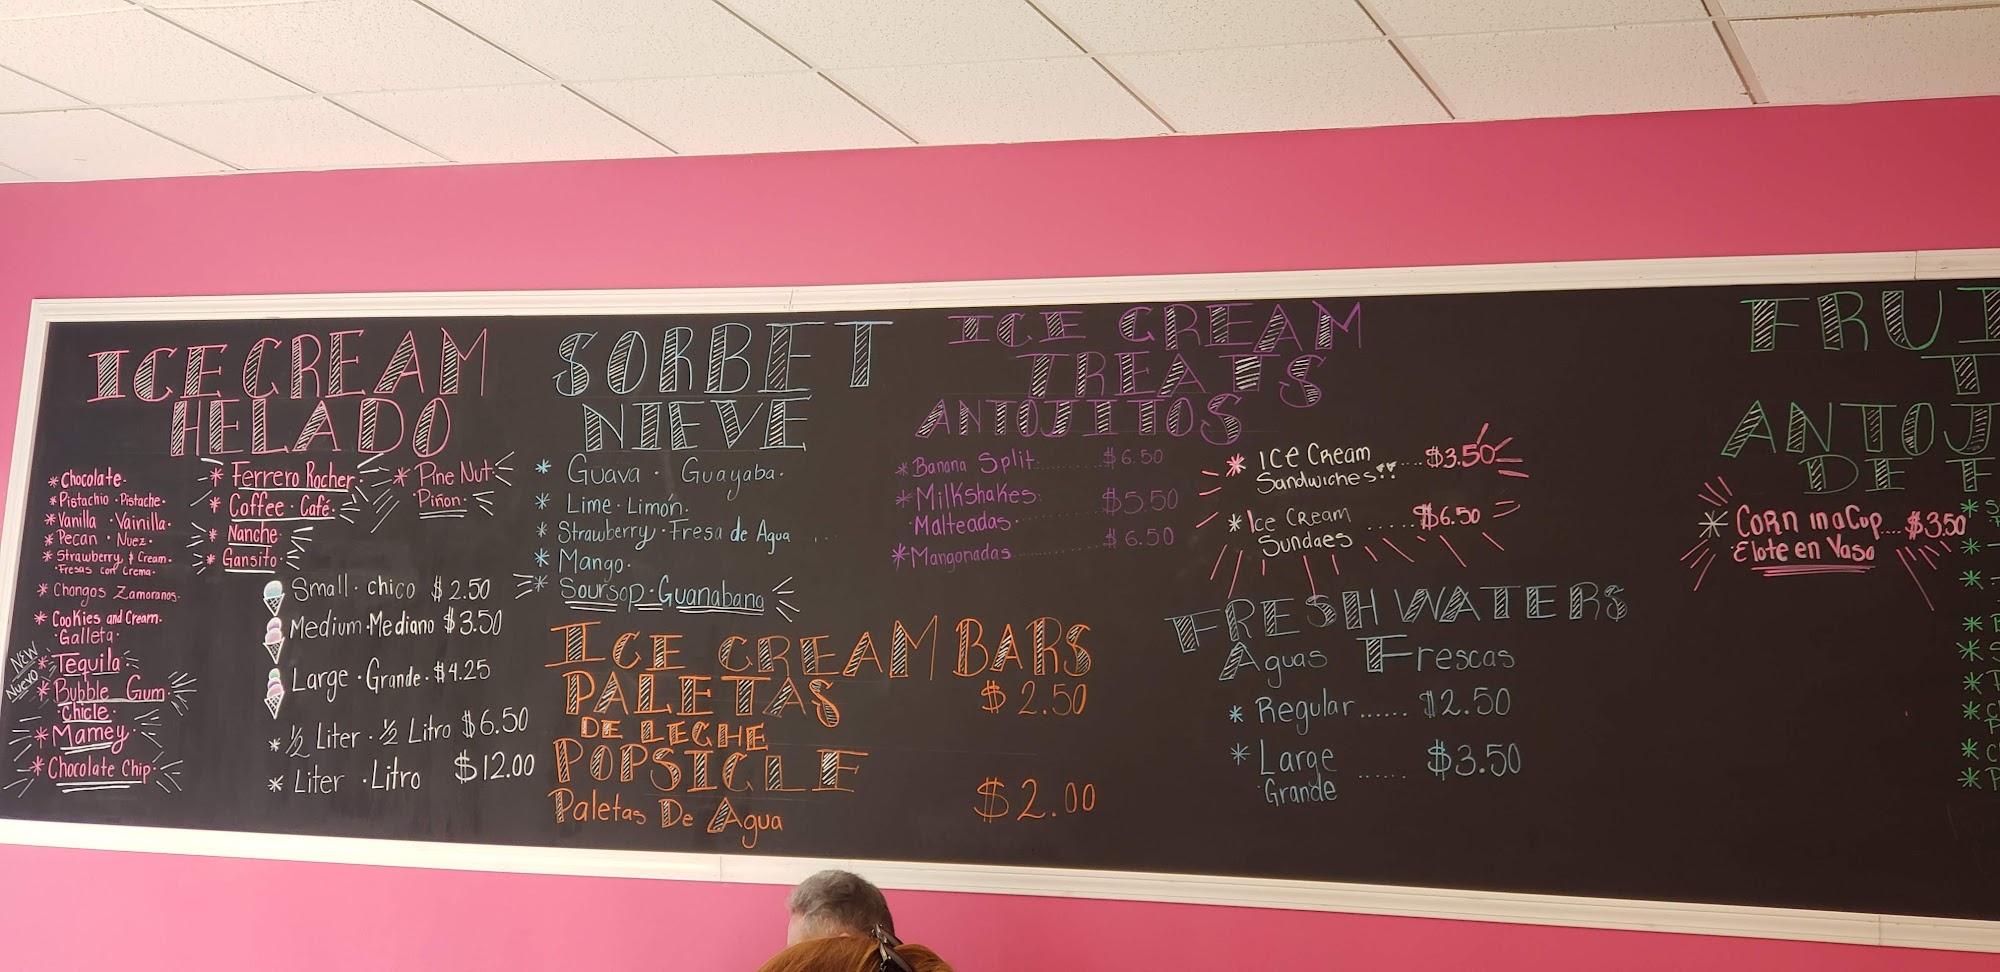 ICE CREAM
HELADO
* Chocolate.
* Pistachio · Pistache.
* Vanilla · Vainilla.
* Pecan · Nuez.
* Strawberry & Cream.
· Fresas con Crema.
* Chongos Zamoranos.
* Cookies and Cream.
· Galleta.
NEW
Nuevo
* Tequila.
* Bubble Gum.
· Chicle.
* Mamey.
* Chocolate Chip.
* Ferrero Rocher
* Coffee · Café.
* Nanche
* Gansito.
* Pine Nut.
Piñon.
Small · chico $2.50
Medium · Mediano $3.50
Large · Grande · $4.25
* ½ Liter · ½ Litro $6.50
* Liter · Litro $12.00
SORBET
NIEVE
* Guava · Guayaba.
* Lime · Limón.
* Strawberry · Fresa de Agua
* Mango.
* Soursop · Guanabana
ICE CREAM BARS
PALETAS $2.50
DE LECHE
POPSICLE
Paletas De Agua $2.00
ICE CREAM
TREATS
ANTOJITOS
* Banana Split........ $6.50
* Milkshakes. $5.50
· Malteadas.
* Mangonadas........ $6.50
* Ice Cream .... $3.50
Sandwiches
* Ice Cream ...... $6.50
Sundaes
FRESH WATERS
Aguas Frescas
* Regular...... $2.50
* Large ...... $3.50
· Grande
FRUI
T
ANTOJ
DE F
* Corn in a Cup.... $3.50
· Elote en Vaso